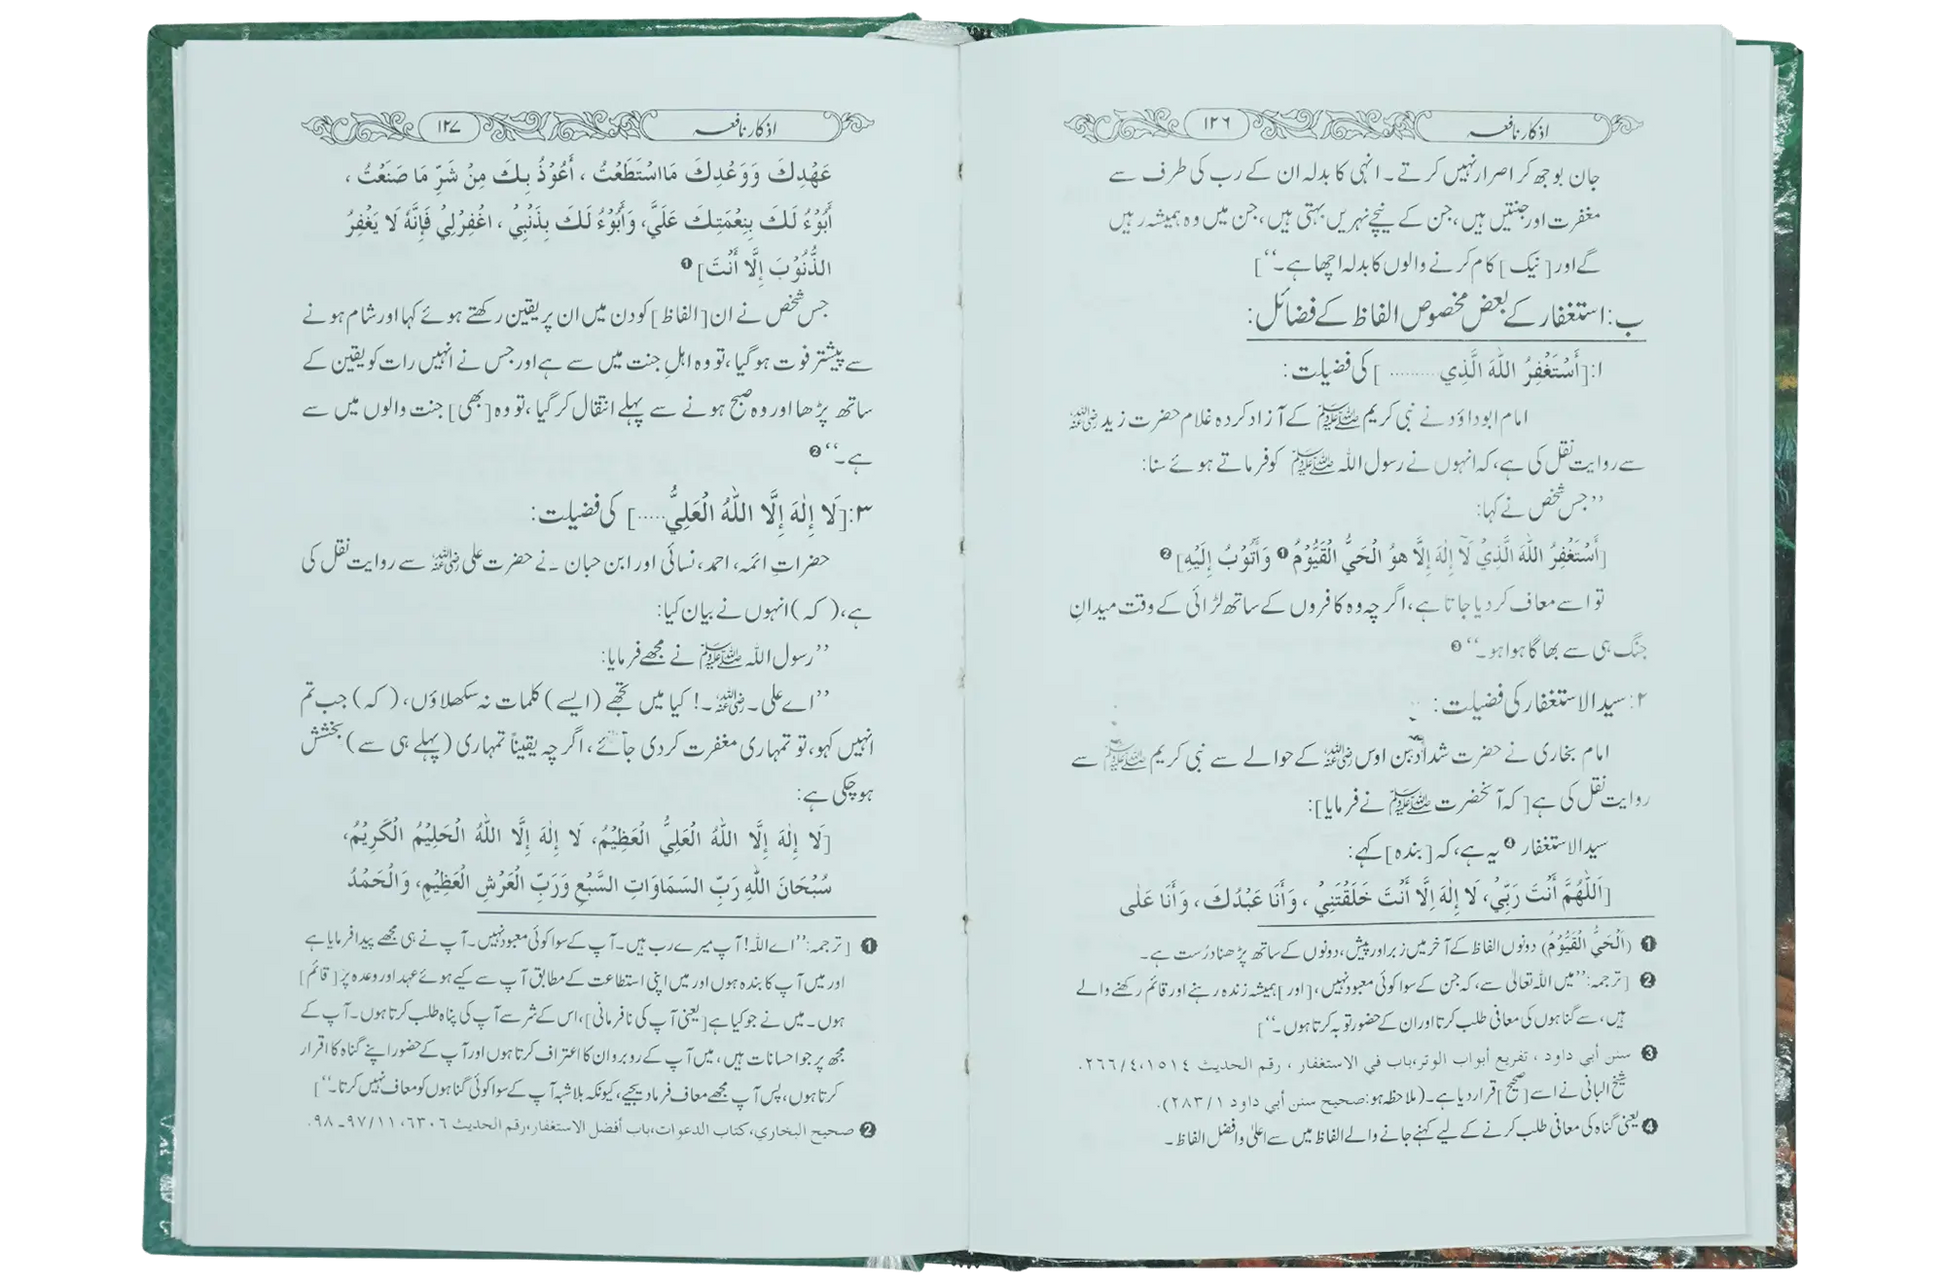 اذکار نافعہ
۱۲۶
جان بوجھ کر اصرار نہیں کرتے۔ انہی کا بدلہ ان کے رب کی طرف سے
مغفرت اور جنتیں ہیں، جن کے نیچے نہریں بہتی ہیں، جن میں وہ ہمیشہ رہیں
گے اور [نیک] کام کرنے والوں کا بدلہ اچھا ہے۔‘‘]
ب: استغفار کے بعض مخصوص الفاظ کے فضائل:
ا: [أَسْتَغْفِرُ اللّٰهَ الَّذِي ..........] کی فضیلت:
امام ابوداؤد نے نبی کریم ﷺ کے آزاد کردہ غلام حضرت زید رضی اللہ عنہ
سے روایت نقل کی ہے، کہ انہوں نے رسول اللہ ﷺ کو فرماتے ہوئے سنا:
’’جس شخص نے کہا:
[أَسْتَغْفِرُ اللّٰهَ الَّذِيْ لَآ إِلٰهَ إِلَّا هُوَ الْحَيُّ الْقَيُّوْمُ ❶ وَأَتُوْبُ إِلَيْهِ] ❷
تو اسے معاف کر دیا جاتا ہے، اگرچہ وہ کافروں کے ساتھ لڑائی کے وقت میدانِ
جنگ ہی سے بھاگا ہوا ہو۔‘‘ ❸
۲: سید الاستغفار کی فضیلت:
امام بخاری نے حضرت شداد بن اوس رضی اللہ عنہ کے حوالے سے نبی کریم ﷺ سے
روایت نقل کی ہے [کہ آنحضرت ﷺ نے فرمایا]:
سید الاستغفار ❹ یہ ہے، کہ [بندہ] کہے:
[اَللّٰهُمَّ أَنْتَ رَبِّيْ، لَا إِلٰهَ إِلَّا أَنْتَ خَلَقْتَنِيْ، وَأَنَا عَبْدُكَ، وَأَنَا عَلٰى
❶ (اَلْحَيُّ الْقَيُّوْمُ) دونوں الفاظ کے آخر میں زبر اور پیش، دونوں کے ساتھ پڑھنا درُست ہے۔
❷ [ترجمہ: ’’میں اللہ تعالیٰ سے، کہ جن کے سوا کوئی معبود نہیں، [اور] ہمیشہ زندہ رہنے اور قائم رکھنے والے
ہیں، سے گناہوں کی معافی طلب کرتا اور ان کے حضور توبہ کرتا ہوں۔‘‘]
❸ سنن أبي داود، تفريع أبواب الوتر، باب في الاستغفار، رقم الحديث ١٥١٤، ٢٦٦/٤.
شیخ البانی نے اسے [صحیح] قرار دیا ہے۔ (ملاحظہ ہو: صحيح سنن أبي داود ٢٨٣/١).
❹ یعنی گناہ کی معافی طلب کرنے کے لیے کہنے جانے والے الفاظ میں سے اعلیٰ و افضل الفاظ۔
اذکار نافعہ
۱۲۷
عَهْدِكَ وَوَعْدِكَ مَا اسْتَطَعْتُ، أَعُوْذُ بِكَ مِنْ شَرِّ مَا صَنَعْتُ،
أَبُوْءُ لَكَ بِنِعْمَتِكَ عَلَيَّ، وَأَبُوْءُ لَكَ بِذَنْبِيْ، اغْفِرْلِيْ فَإِنَّهٗ لَا يَغْفِرُ
الذُّنُوْبَ إِلَّا أَنْتَ] ❶
جس شخص نے ان [الفاظ] کو دن میں ان پر یقین رکھتے ہوئے کہا اور شام ہونے
سے پیشتر فوت ہو گیا، تو وہ اہلِ جنت میں سے ہے اور جس نے انہیں رات کو یقین کے
ساتھ پڑھا اور وہ صبح ہونے سے پہلے انتقال کر گیا، تو وہ [بھی] جنت والوں میں سے
ہے۔‘‘ ❷
۳: [لَا إِلٰهَ إِلَّا اللّٰهُ الْعَلِيُّ.....] کی فضیلت:
حضراتِ ائمہ، احمد، نسائی اور ابن حبان نے حضرت علی رضی اللہ عنہ سے روایت نقل کی
ہے، (کہ) انہوں نے بیان کیا:
’’رسول اللہ ﷺ نے مجھے فرمایا:
’’اے علی۔ رضی اللہ عنہ۔! کیا میں تجھے (ایسے) کلمات نہ سکھلاؤں، (کہ) جب تم
انہیں کہو، تو تمہاری مغفرت کر دی جائے، اگرچہ یقیناً تمہاری (پہلے ہی سے) بخشش
ہو چکی ہے:
[لَا إِلٰهَ إِلَّا اللّٰهُ الْعَلِيُّ الْعَظِيْمُ، لَا إِلٰهَ إِلَّا اللّٰهُ الْحَلِيْمُ الْكَرِيْمُ،
سُبْحَانَ اللّٰهِ رَبِّ السَّمَاوَاتِ السَّبْعِ وَرَبِّ الْعَرْشِ الْعَظِيْمِ، وَالْحَمْدُ
❶ [ترجمہ: ’’اے اللہ! آپ میرے رب ہیں۔ آپ کے سوا کوئی معبود نہیں۔ آپ نے ہی مجھے پیدا فرمایا ہے
اور میں آپ کا بندہ ہوں اور میں اپنی استطاعت کے مطابق آپ سے کیے ہوئے عہد اور وعدہ پر [قائم]
ہوں۔ میں نے جو کیا ہے [یعنی آپ کی نافرمانی]، اس کے شر سے آپ کی پناہ طلب کرتا ہوں۔ آپ کے
مجھ پر جو احسانات ہیں، میں آپ کے روبرو ان کا اعتراف کرتا ہوں اور آپ کے حضور اپنے گناہ کا اقرار
کرتا ہوں، پس آپ مجھے معاف فرما دیجیے، کیونکہ بلاشبہ آپ کے سوا کوئی گناہوں کو معاف نہیں کرتا۔‘‘]
❷ صحيح البخاري، كتاب الدعوات، باب أفضل الاستغفار، رقم الحديث ٦٣٠٦، ٩٧/١١ـ٩٨.